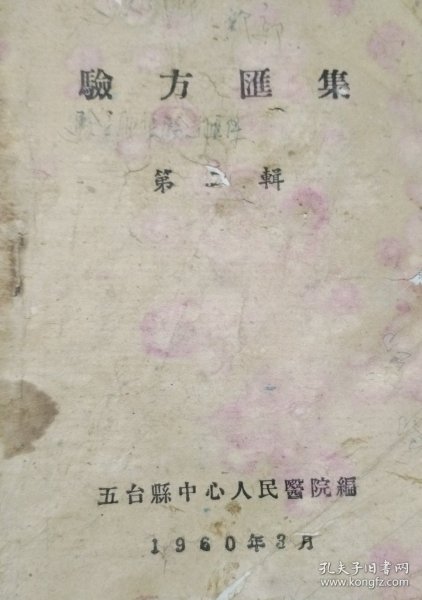 驗方匯集
第二輯
五台縣中心人民醫院編
1960年3月
孔夫子旧书网
www.kongfz.com